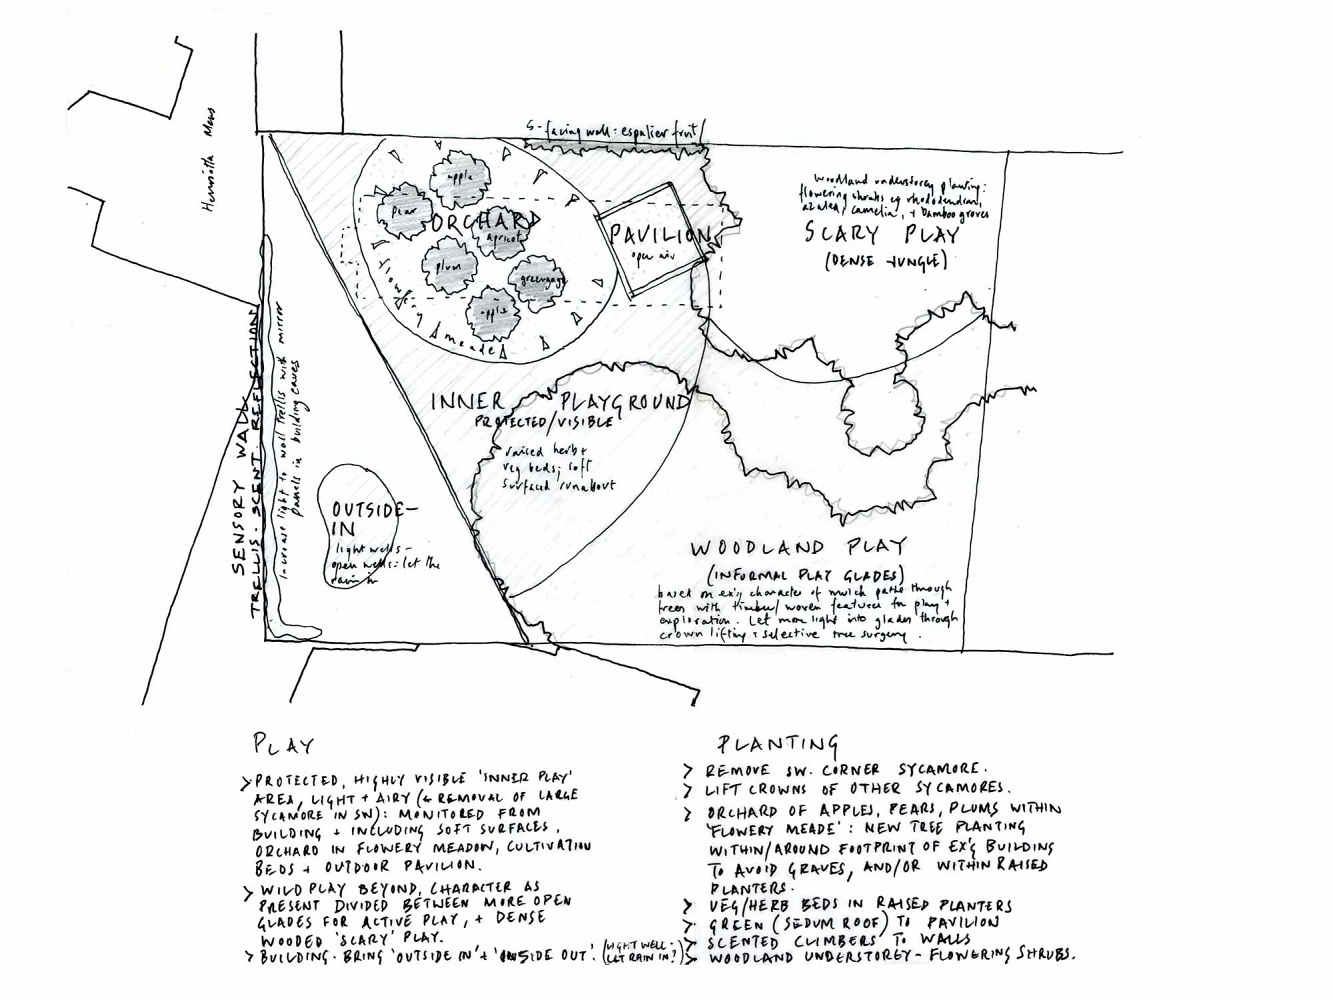 Henrietta Mews
S-facing wall: espalier fruit
apple
pear
ORCHARD
apricot
plum
greengage
apple
flowery meade
PAVILION
open air
woodland understorey planting:
flowering shrubs eg rhododendron,
azalea, camelia, + bamboo groves
SCARY PLAY
(DENSE JUNGLE)
INNER PLAYGROUND
PROTECTED/VISIBLE
raised herb +
veg beds; soft
surfaced runabout
SENSORY WALL
TRELLIS. SCENT. REFLECTION
Increase light to wall trellis with mirror
panels in building eaves
OUTSIDE-
IN
light wells -
open wells: let the
rain in
WOODLAND PLAY
(INFORMAL PLAY GLADES)
based on ex'g character of mulch paths through
trees with timber/woven features for play +
exploration. Let more light into glades through
crown lifting + selective tree surgery.
PLAY
> PROTECTED, HIGHLY VISIBLE 'INNER PLAY'
AREA, LIGHT + AIRY (← REMOVAL OF LARGE
SYCAMORE IN SW): MONITORED FROM
BUILDING + INCLUDING SOFT SURFACES,
ORCHARD IN FLOWERY MEADOW, CULTIVATION
BEDS + OUTDOOR PAVILION.
> WILD PLAY BEYOND, CHARACTER AS
PRESENT DIVIDED BETWEEN MORE OPEN
GLADES FOR ACTIVE PLAY, + DENSE
WOODED 'SCARY' PLAY.
> BUILDING. BRING 'OUTSIDE IN' + 'INSIDE OUT'. (LIGHT WELL -
LET RAIN IN?)
PLANTING
> REMOVE SW. CORNER SYCAMORE.
> LIFT CROWNS OF OTHER SYCAMORES.
> ORCHARD OF APPLES, PEARS, PLUMS WITHIN
'FLOWERY MEADE': NEW TREE PLANTING
WITHIN/AROUND FOOTPRINT OF EX'G BUILDING
TO AVOID GRAVES, AND/OR WITHIN RAISED
PLANTERS.
> VEG/HERB BEDS IN RAISED PLANTERS
> GREEN (SEDUM ROOF) TO PAVILION
> SCENTED CLIMBERS TO WALLS
> WOODLAND UNDERSTOREY - FLOWERING SHRUBS.